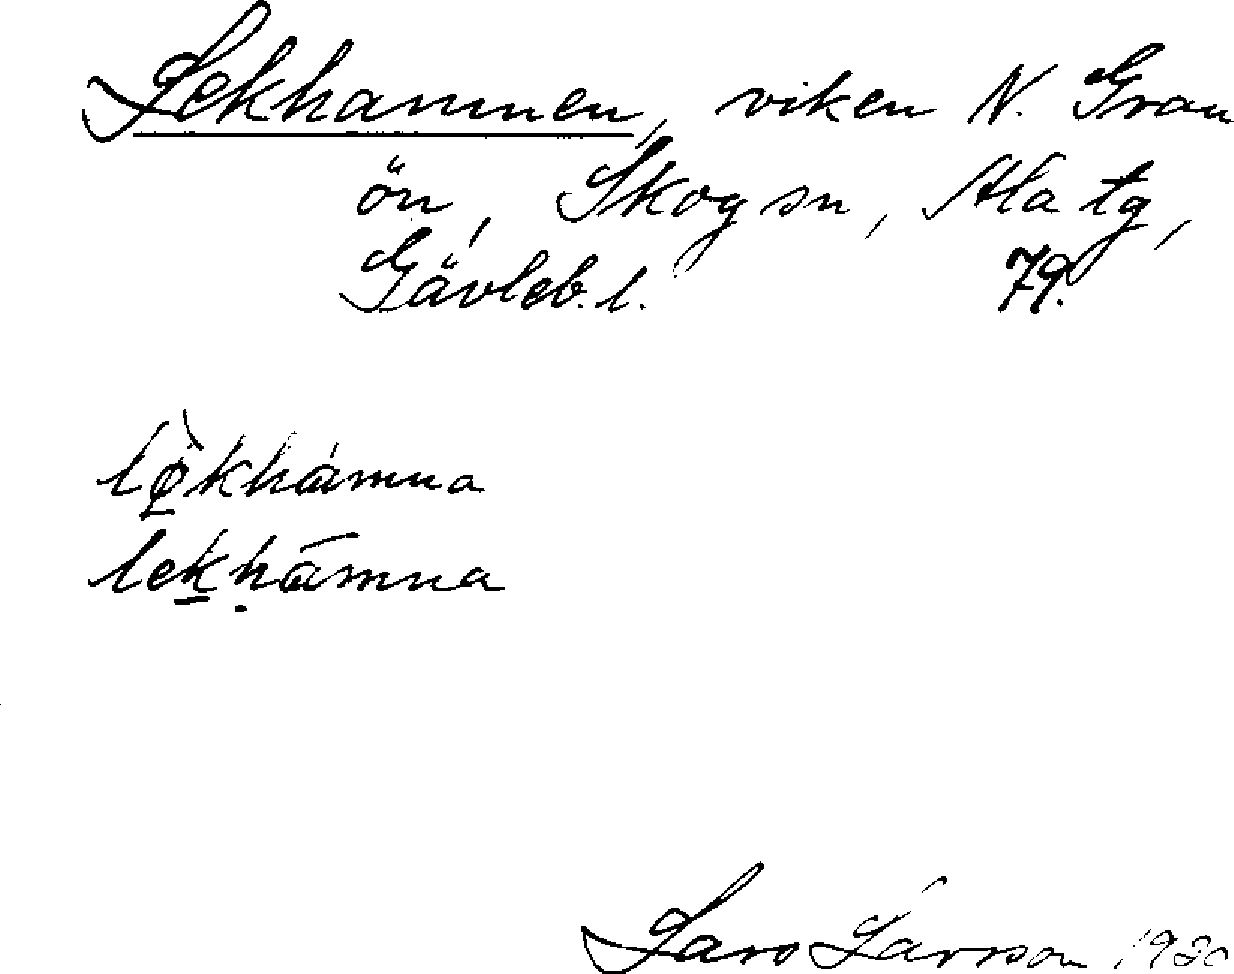 Lekhamnen, viken N. Gran
ön, Skog sn, Ala tg,
Gävleb. l. 79.
lekhámna
Lars Larsson 19